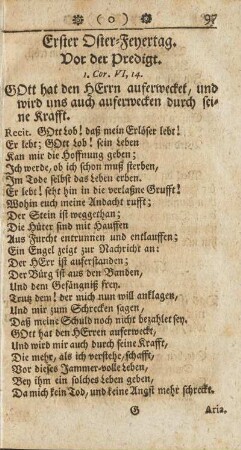 ( o ) 97
Erster Oster-Feyertag.
Vor der Predigt.
1. Cor. VI, 14.
GOtt hat den HErrn auferwecket, und
wird uns auch auferwecken durch sei-
ne Krafft.
Recit. GOtt Lob! daß mein Erlöser lebt!
Er lebt; GOtt Lob! sein Leben
Kan mir die Hoffnung geben;
Ich werde, ob ich schon muß sterben,
Im Tode selbst das Leben erben.
Er lebt! seht hin in die verlaßne Grufft!
Wohin euch meine Andacht rufft;
Der Stein ist weggethan;
Die Hüter sind mit Hauffen
Aus Furcht entrunnen und entlauffen;
Ein Engel zeigt zur Nachricht an:
Der HErr ist auferstanden;
Der Bürg ist aus den Banden,
Und dem Gefängniß frey.
Trutz dem! der mich nun will anklagen,
Und mir zum Schrecken sagen,
Daß meine Schuld noch nicht bezahlet sey.
GOtt hat den HErren auferweckt,
Und wird mir auch durch seine Krafft,
Die mehr, als ich verstehe, schafft,
Vor dieses Jammer-volle Leben,
Bey ihm ein solches Leben geben,
Da mich kein Tod, und keine Angst mehr schreckt.
G Aria.